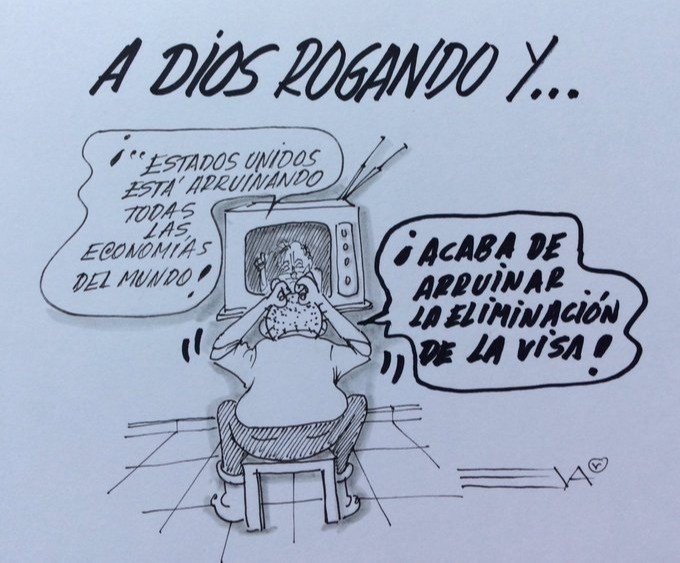 A DIOS ROGANDO Y...
¡“ESTADOS UNIDOS
ESTÁ ARRUINANDO
TODAS
LAS
ECONOMÍAS
DEL MUNDO!
¡ACABA DE
ARRUINAR
LA ELIMINACIÓN
DE LA VISA!